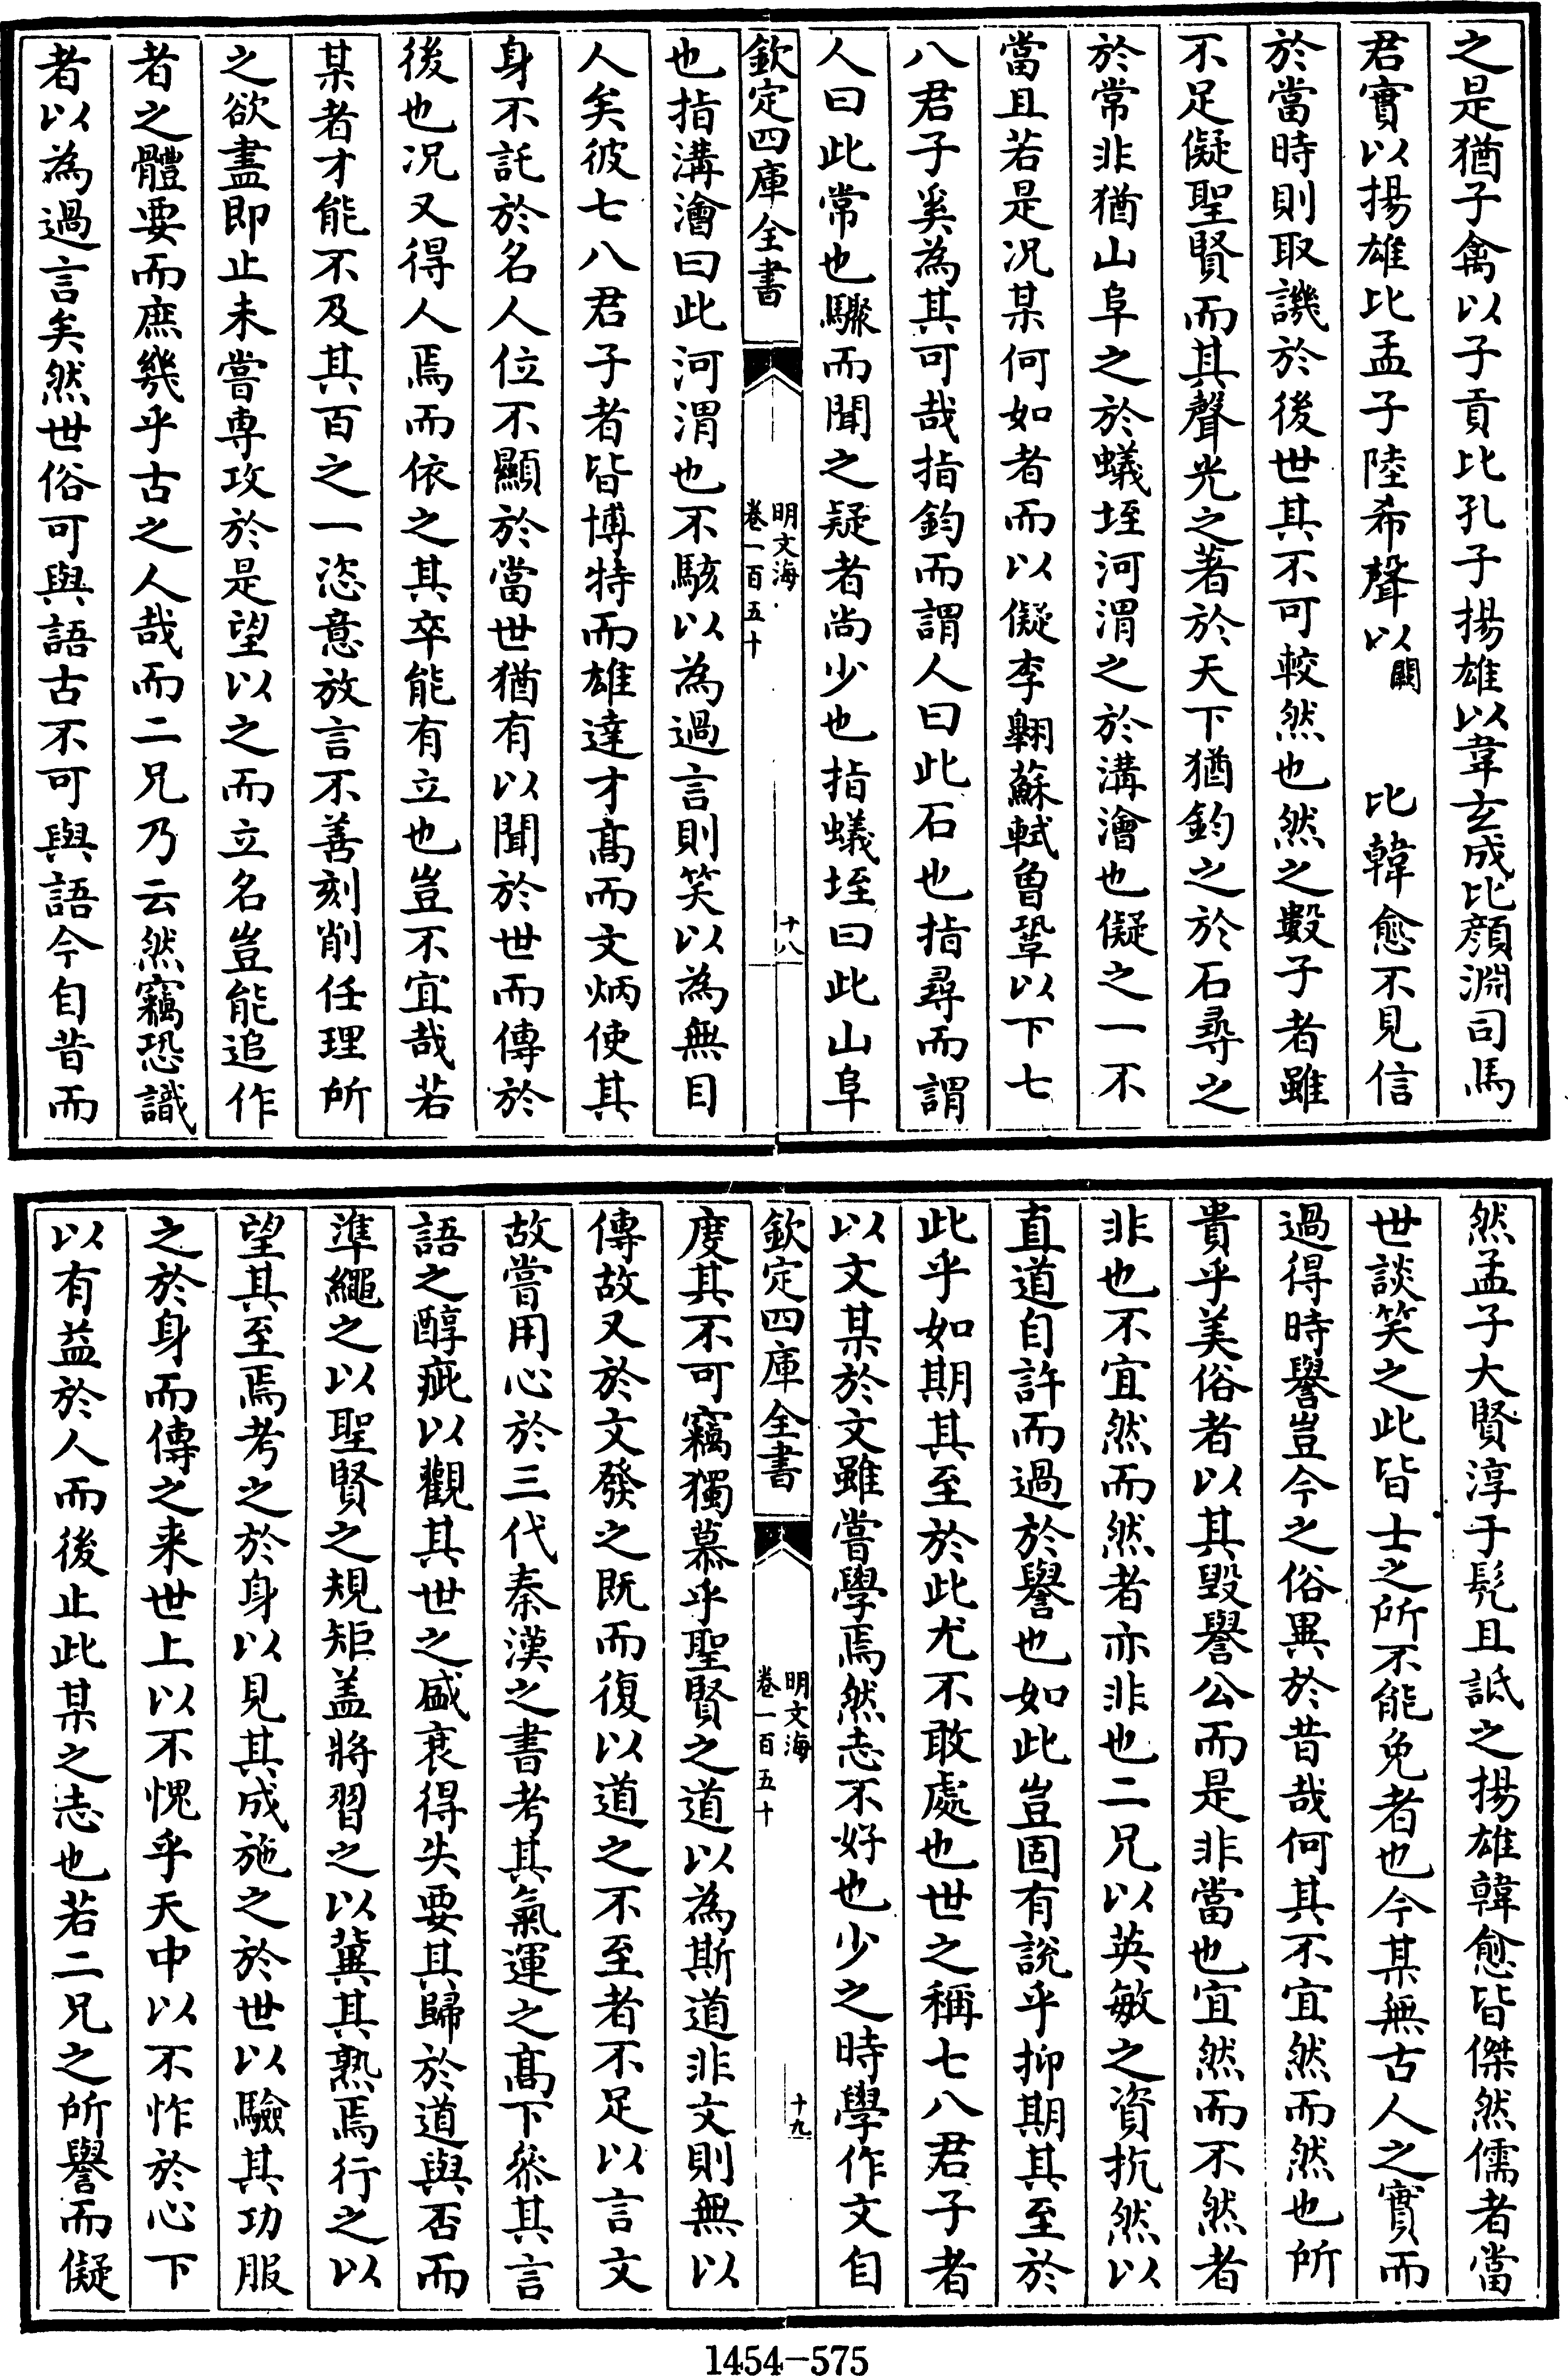 之是猶子禽以子貢比孔子揚雄以韋玄成比顔淵司馬
君實以揚雄比孟子陸希聲以闕 比韓愈不見信
於當時則取譏於後世其不可較然也然之數子者雖
不足儗聖賢而其聲光之著於天下猶鈞之於石尋之
於常非猶山阜之於蟻垤河渭之於溝澮也儗之一不
當且若是况某何如者而以儗李翺蘇軾曾鞏以下七
八君子奚為其可哉指鈞而謂人曰此石也指尋而謂
人曰此常也驟而聞之疑者尚少也指蟻垤曰此山阜
欽定四庫全書
明文海
卷一百五十
十八
也指溝澮曰此河渭也不駭以為過言則笑以為無目
人矣彼七八君子者皆博特而雄達才髙而文炳使其
身不託於名人位不顯於當世猶有以聞於世而傳於
後也况又得人焉而依之其卒能有立也豈不宜哉若
某者才能不及其百之一恣意放言不善刻削任理所
之欲盡即止未嘗専攻於是望以之而立名豈能追作
者之體要而庶幾乎古之人哉而二兄乃云然竊恐識
者以為過言矣然世俗可與語古不可與語今自昔而
然孟子大賢淳于髠且詆之揚雄韓愈皆傑然儒者當
世談笑之此皆士之所不能免者也今某無古人之實而
過得時譽豈今之俗異於昔哉何其不宜然而然也所
貴乎美俗者以其毀譽公而是非當也宜然而不然者
非也不宜然而然者亦非也二兄以英敏之資抗然以
直道自許而過於譽也如此豈固有說乎抑期其至於
此乎如期其至於此尤不敢處也世之稱七八君子者
以文某於文雖嘗學焉然志不好也少之時學作文自
欽定四庫全書
明文海
卷一百五十
十九
度其不可竊獨慕乎聖賢之道以為斯道非文則無以
傳故又於文發之既而復以道之不至者不足以言文
故嘗用心於三代秦漢之書考其氣運之髙下叅其言
語之醇疵以觀其世之盛衰得失要其歸於道與否而
準繩之以聖賢之規矩盖將習之以冀其熟焉行之以
望其至焉考之於身以見其成施之於世以驗其功服
之於身而傳之来世上以不愧乎天中以不怍於心下
以有益於人而後止此某之志也若二兄之所譽而儗
1454-575